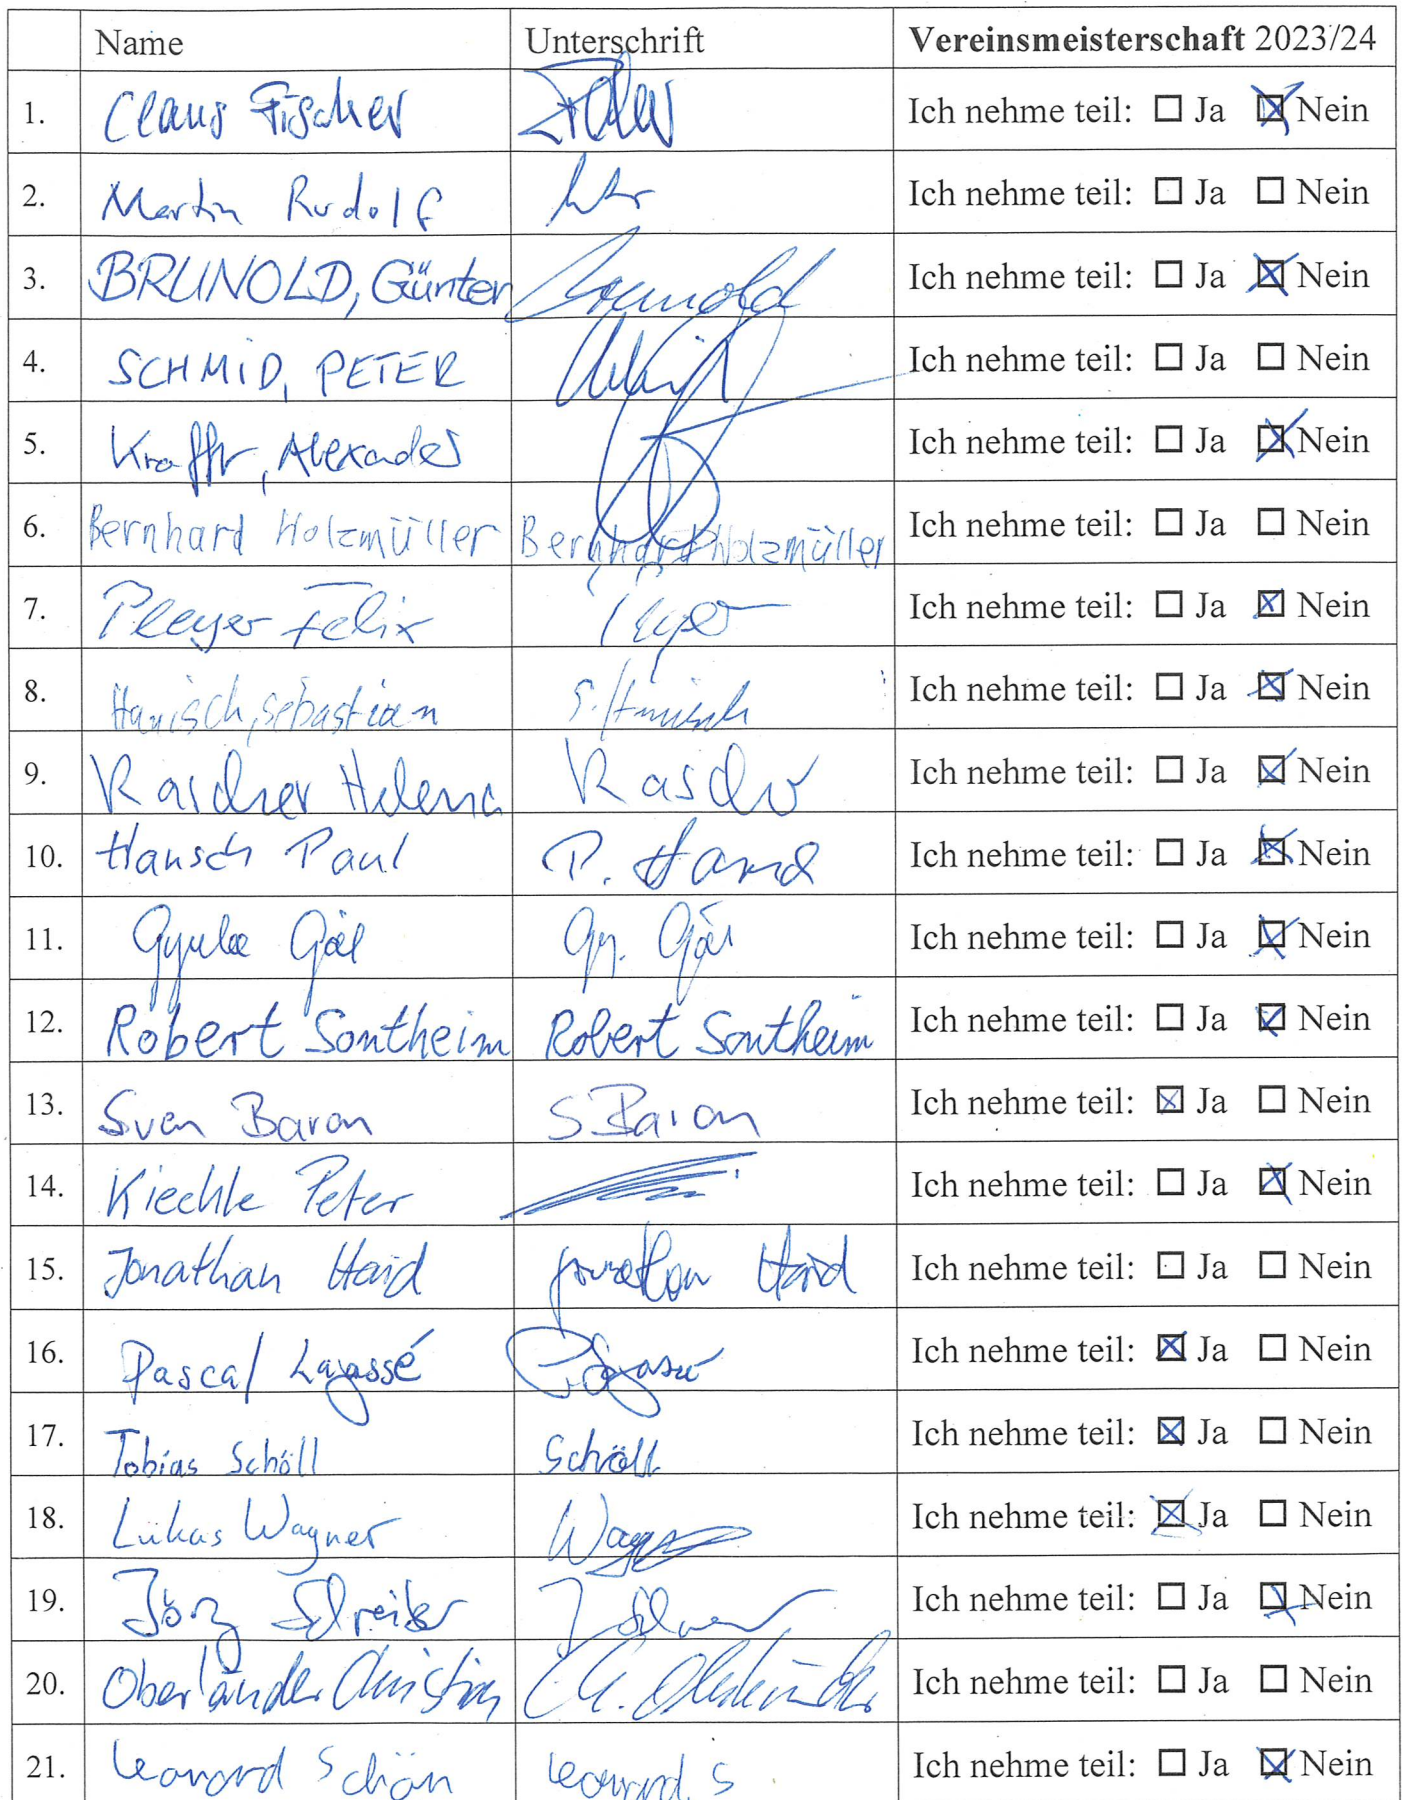 Name Unterschrift Vereinsmeisterschaft 2023/24
1. Claus Fischer Ich nehme teil: ☐ Ja ☒ Nein
2. Martin Rudolf Ich nehme teil: ☐ Ja ☐ Nein
3. BRUNOLD, Günter Brunold Ich nehme teil: ☐ Ja ☒ Nein
4. SCHMID, PETER Ich nehme teil: ☐ Ja ☐ Nein
5. Krafft, Alexander Ich nehme teil: ☐ Ja ☒ Nein
6. Bernhard Holzmüller Bernhard Holzmüller Ich nehme teil: ☐ Ja ☐ Nein
7. Pleyer Felix Ich nehme teil: ☐ Ja ☒ Nein
8. Hanisch, Sebastian S. Hanisch Ich nehme teil: ☐ Ja ☒ Nein
9. Rascher Helena Rascher Ich nehme teil: ☐ Ja ☒ Nein
10. Hansch Paul P. Hansch Ich nehme teil: ☐ Ja ☒ Nein
11. Gyula Gál Gy. Gál Ich nehme teil: ☐ Ja ☒ Nein
12. Robert Sontheim Robert Sontheim Ich nehme teil: ☐ Ja ☒ Nein
13. Sven Baron S Baron Ich nehme teil: ☒ Ja ☐ Nein
14. Kiechle Peter Ich nehme teil: ☐ Ja ☒ Nein
15. Jonathan Haid Jonathan Haid Ich nehme teil: ☐ Ja ☐ Nein
16. Pascal Lagassé Ich nehme teil: ☒ Ja ☐ Nein
17. Tobias Schöll Schöll Ich nehme teil: ☒ Ja ☐ Nein
18. Lukas Wagner Wagner Ich nehme teil: ☒ Ja ☐ Nein
19. Jörg Schreiber Ich nehme teil: ☐ Ja ☒ Nein
20. Oberländer Christian Ch. Oberländer Ich nehme teil: ☐ Ja ☐ Nein
21. Leonard Schön Leonard S Ich nehme teil: ☐ Ja ☒ Nein